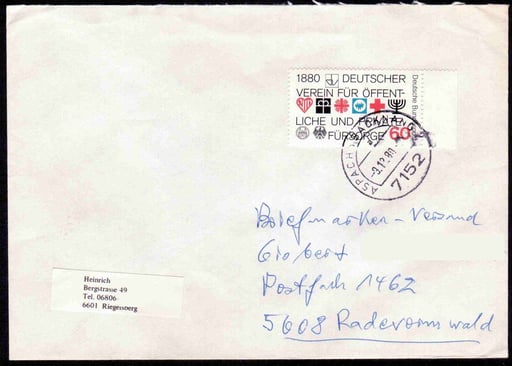 1880 DEUTSCHER
VEREIN FÜR ÖFFENT-
LICHE UND
FÜRSORGE 60
Deutsche
ASPACH BACKNANG
-9.12.80
7152
Briefmarken-Versand
Giobert
Postfach 1462
5608 Radevormwald
Heinrich
Bergstrasse 49
Tel. 06806
6601 Riegelsberg